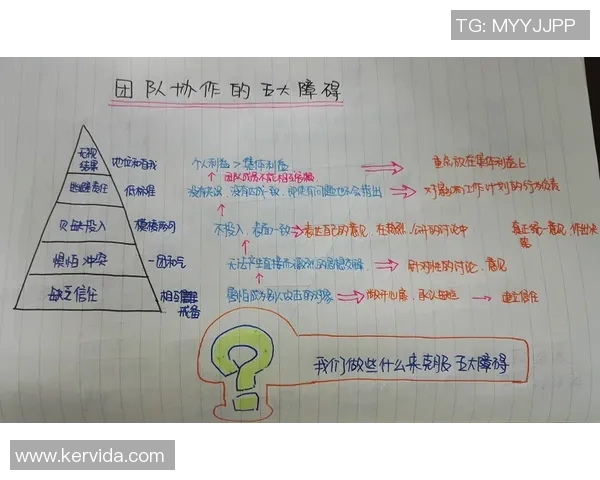 TG: MYYJJPP
团队协作的五大障碍
无视结果 地位和自我 个人利益 > 集体利益 重点放在集体利益上
团队成员不能相互
逃避责任 低标准 没有 对影响工作计划的行为负责
欠缺投入 模棱两可 不投入，表面一致 表达自己的意见，在 公开的讨论中 真正统一意见，作出决策
惧怕冲突 一团和气 无法产生直接而激烈的思想交锋 针对性的讨论、意见
缺乏信任 相互 戒备 害怕成为别人攻击的对象 敞开心扉，承认 建立信任
我们做些什么来克服五大障碍
www.kervida.com